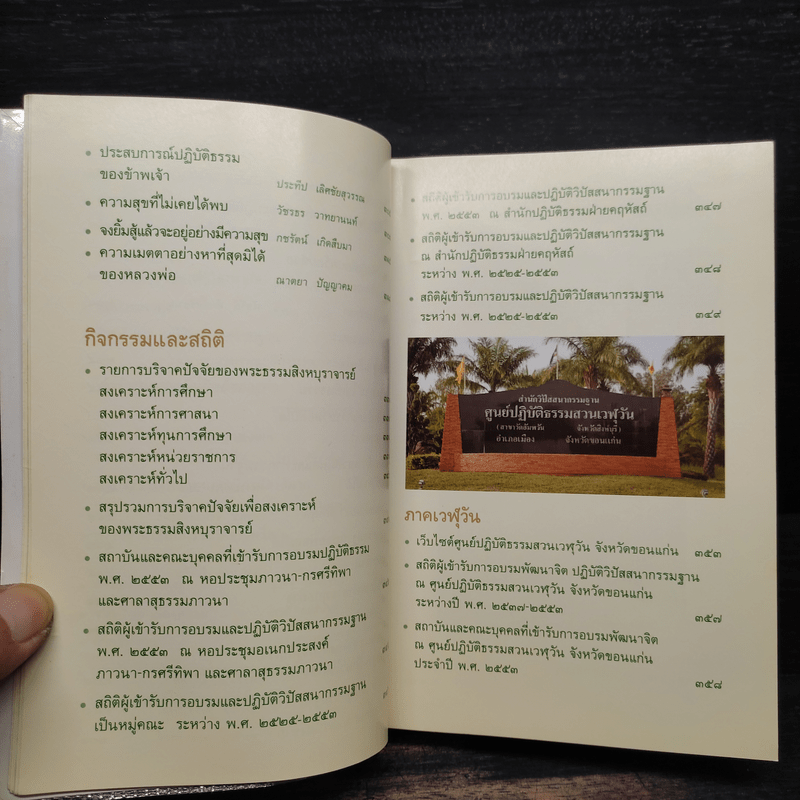 ประสบการณ์ปฏิบัติธรรม
ของข้าพเจ้า
ประทีป เลิศชัยสุวรรณ
ความสุขที่ไม่เคยได้พบ
วัชรธร วาทยานนท์
จงยิ้มสู้แล้วจะอยู่อย่างมีความสุข กชรัตน์ เกิดสืบมา
ความเมตตาอย่างหาที่สุดมิได้
ของหลวงพ่อ
ณาตยา ปัญญาคม
กิจกรรมและสถิติ
รายการบริจาคปัจจัยของพระธรรมสิงหบุราจารย์
สงเคราะห์การศึกษา
สงเคราะห์การศาสนา
สงเคราะห์ทุนการศึกษา
สงเคราะห์หน่วยราชการ
สงเคราะห์ทั่วไป
สรุปรวมการบริจาคปัจจัยเพื่อสงเคราะห์
ของพระธรรมสิงหบุราจารย์
สถาบันและคณะบุคคลที่เข้ารับการอบรมปฏิบัติธรรม
พ.ศ. ๒๕๕๓ ณ หอประชุมภาวนา-กรศรีทิพา
และศาลาสุธรรมภาวนา
สถิติผู้เข้ารับการอบรมและปฏิบัติวิปัสสนากรรมฐาน
พ.ศ. ๒๕๕๓ ณ หอประชุมอเนกประสงค์
ภาวนา-กรศรีทิพา และศาลาสุธรรมภาวนา
สถิติผู้เข้ารับการอบรมและปฏิบัติวิปัสสนากรรมฐาน
เป็นหมู่คณะ ระหว่าง พ.ศ. ๒๕๒๕-๒๕๕๓
สถิติผู้เข้ารับการอบรมและปฏิบัติวิปัสสนากรรมฐาน
พ.ศ. ๒๕๕๓ ณ สำนักปฏิบัติธรรมฝ่ายคฤหัสถ์ ๓๔๗
สถิติผู้เข้ารับการอบรมและปฏิบัติวิปัสสนากรรมฐาน
ณ สำนักปฏิบัติธรรมฝ่ายคฤหัสถ์
ระหว่าง พ.ศ. ๒๕๒๕-๒๕๕๓ ๓๔๘
สถิติผู้เข้ารับการอบรมและปฏิบัติวิปัสสนากรรมฐาน
ระหว่าง พ.ศ. ๒๕๒๕-๒๕๕๓ ๓๔๙
สำนักวิปัสสนากรรมฐาน
ศูนย์ปฏิบัติธรรมสวนเวฬุวัน
(สาขาวัดอัมพวัน จังหวัดสิงห์บุรี)
อำเภอเมือง จังหวัดขอนแก่น
ภาคเวฬุวัน
เว็บไซต์ศูนย์ปฏิบัติธรรมสวนเวฬุวัน จังหวัดขอนแก่น ๓๕๓
สถิติผู้เข้ารับการอบรมพัฒนาจิต ปฏิบัติวิปัสสนากรรมฐาน
ณ ศูนย์ปฏิบัติธรรมสวนเวฬุวัน จังหวัดขอนแก่น
ระหว่างปี พ.ศ. ๒๕๓๗-๒๕๕๓ ๓๕๗
สถาบันและคณะบุคคลที่เข้ารับการอบรมพัฒนาจิต
ณ ศูนย์ปฏิบัติธรรมสวนเวฬุวัน จังหวัดขอนแก่น
ประจำปี พ.ศ. ๒๕๕๓
๓๕๘